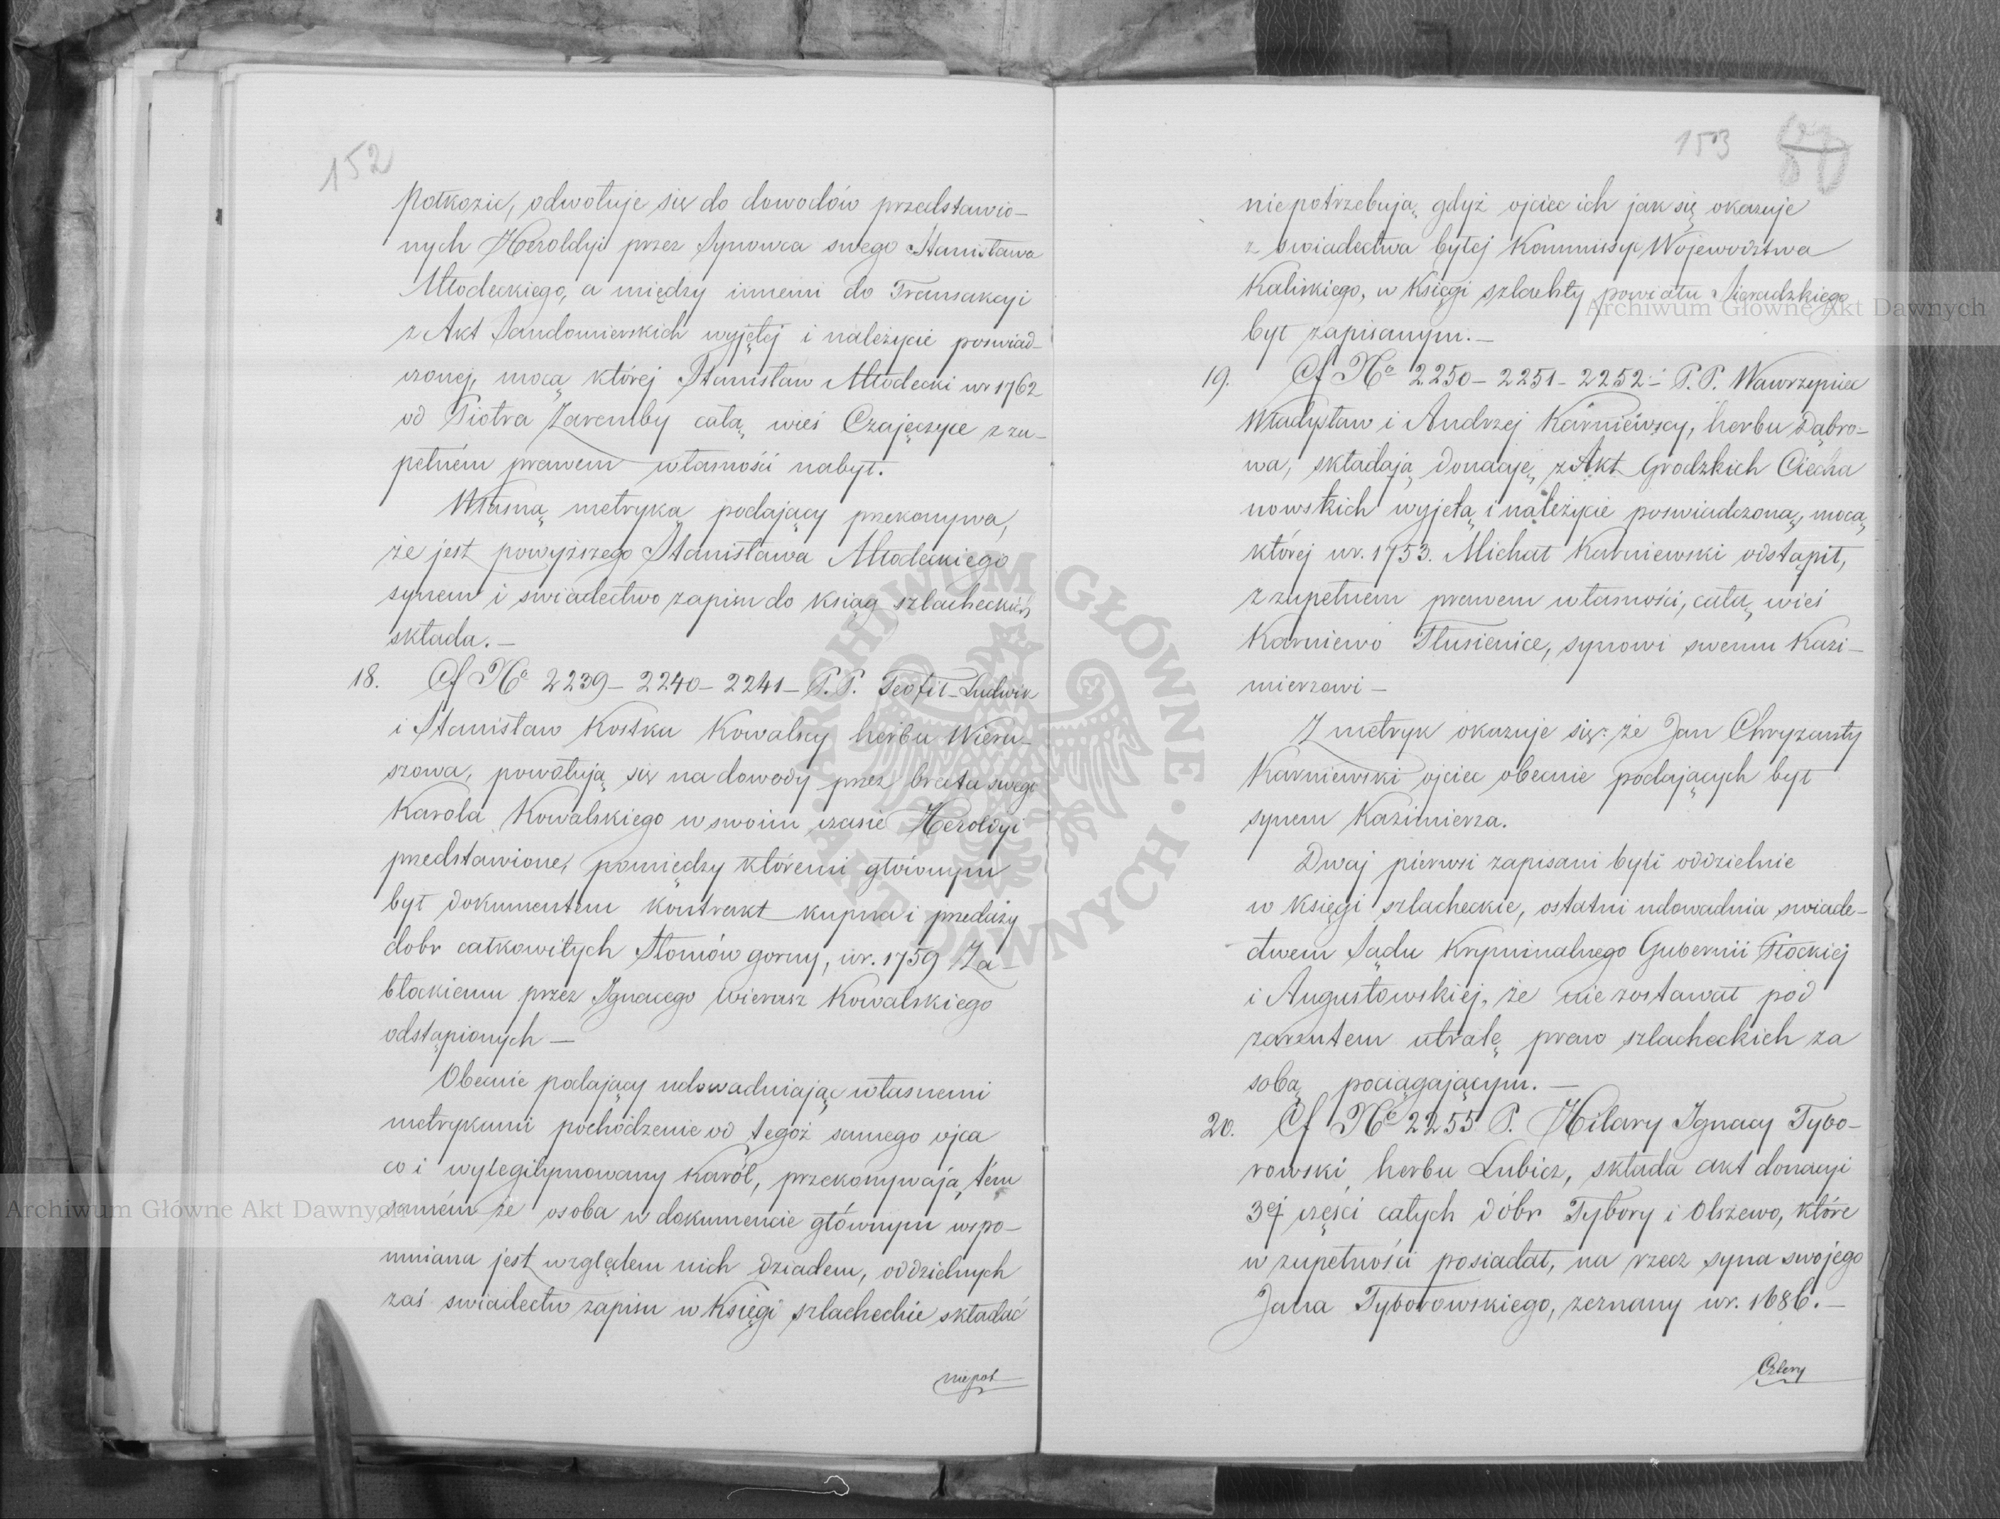 152
Półkozic, odwołuje się do dowodów przedstawio-
nych Heroldyi przez Synowca swego Stanisława
Młodeckiego, a między innemi do Transakcyi
z Akt Sandomierskich wyjętej i należycie poswiad-
czonej, mocą której Stanisław Młodecki w r 1762
od Piotra Zaremby całą wieś Czajęczyce z zu-
pełném prawem własności nabył.
Własną metryką podający przekonywa,
że jest powyższego Stanisława Młodeckiego
synem i swiadectwo zapisu do ksiąg szlacheckich
składa. —
18. Cf No 2239 – 2240 – 2241 – P. P. Teofil – Ludwik
i Stanisław Kostka Kowalscy herbu Wieru-
szowa, powołują się na dowody przez brata swego
Karola Kowalskiego w swoim czasie Heroldyi
przedstawione, pomiędzy któremi głównym
był dokumentem kontrakt kupna i przedaży
dobr całkowitych Słomów gorny, w r. 1759 Za-
błockiemu przez Ignacego Wierusz Kowalskiego
odstąpionych —
Obecnie podający udowadniając własnemi
metrykami pochodzenie od tegoż samego ojca
co i wylegitymowany Karól, przekonywają tém
samém że osoba w dokumencie głównym wspo-
mniana jest względem nich dziadem, oddzielnych
zaś swiadectw zapisu w Księgi szlacheckie składać
niepot
153
80
niepotrzebują gdyż ojciec ich jak się okazuje
z swiadectwa byłej Kommissyi Województwa
Kaliskiego, w Księgi szlachty powiatu Sieradzkiego
był zapisanym. —
19. Cf No 2250 – 2251 – 2252 – P. P. Wawrzyniec
Władysław i Andrzej Karniewscy, herbu Dąbro-
wa, składają donacyę z Akt Grodzkich Ciecha
nowskich wyjętą i należycie poswiadczoną, mocą
której w r. 1753. Michał Karniewski odstąpił,
z zupełnem prawem własności, całą wieś
Karniewo Tłusienice, synowi swemu Kazi-
mierzowi —
Z metryk okazuje się: że Jan Chryzanty
Karniewski ojciec obecnie podających był
synem Kazimierza.
Dwaj pierwsi zapisani byli oddzielnie
w księgi szlacheckie, ostatni udowadnia swiade-
ctwem Sądu Kryminalnego Gubernii Płockiej
i Augustowskiej, że nie zostawał pod
zarzutem utratę praw szlacheckich za
sobą pociągającym. —
20. Cf No 2255 P. Hilary Ignacy Tybo-
rowski herbu Lubicz, składa akt donacyi
3ej części całych dóbr Tybory i Olszewo, które
w zupełności posiadał, na rzecz syna swojego
Jana Tyborowskiego, zeznany w r. 1686. —
Cztery
Archiwum Główne Akt Dawnych
Archiwum Główne Akt Dawnych
ARCHIWUM GŁÓWNE AKT DAWNYCH